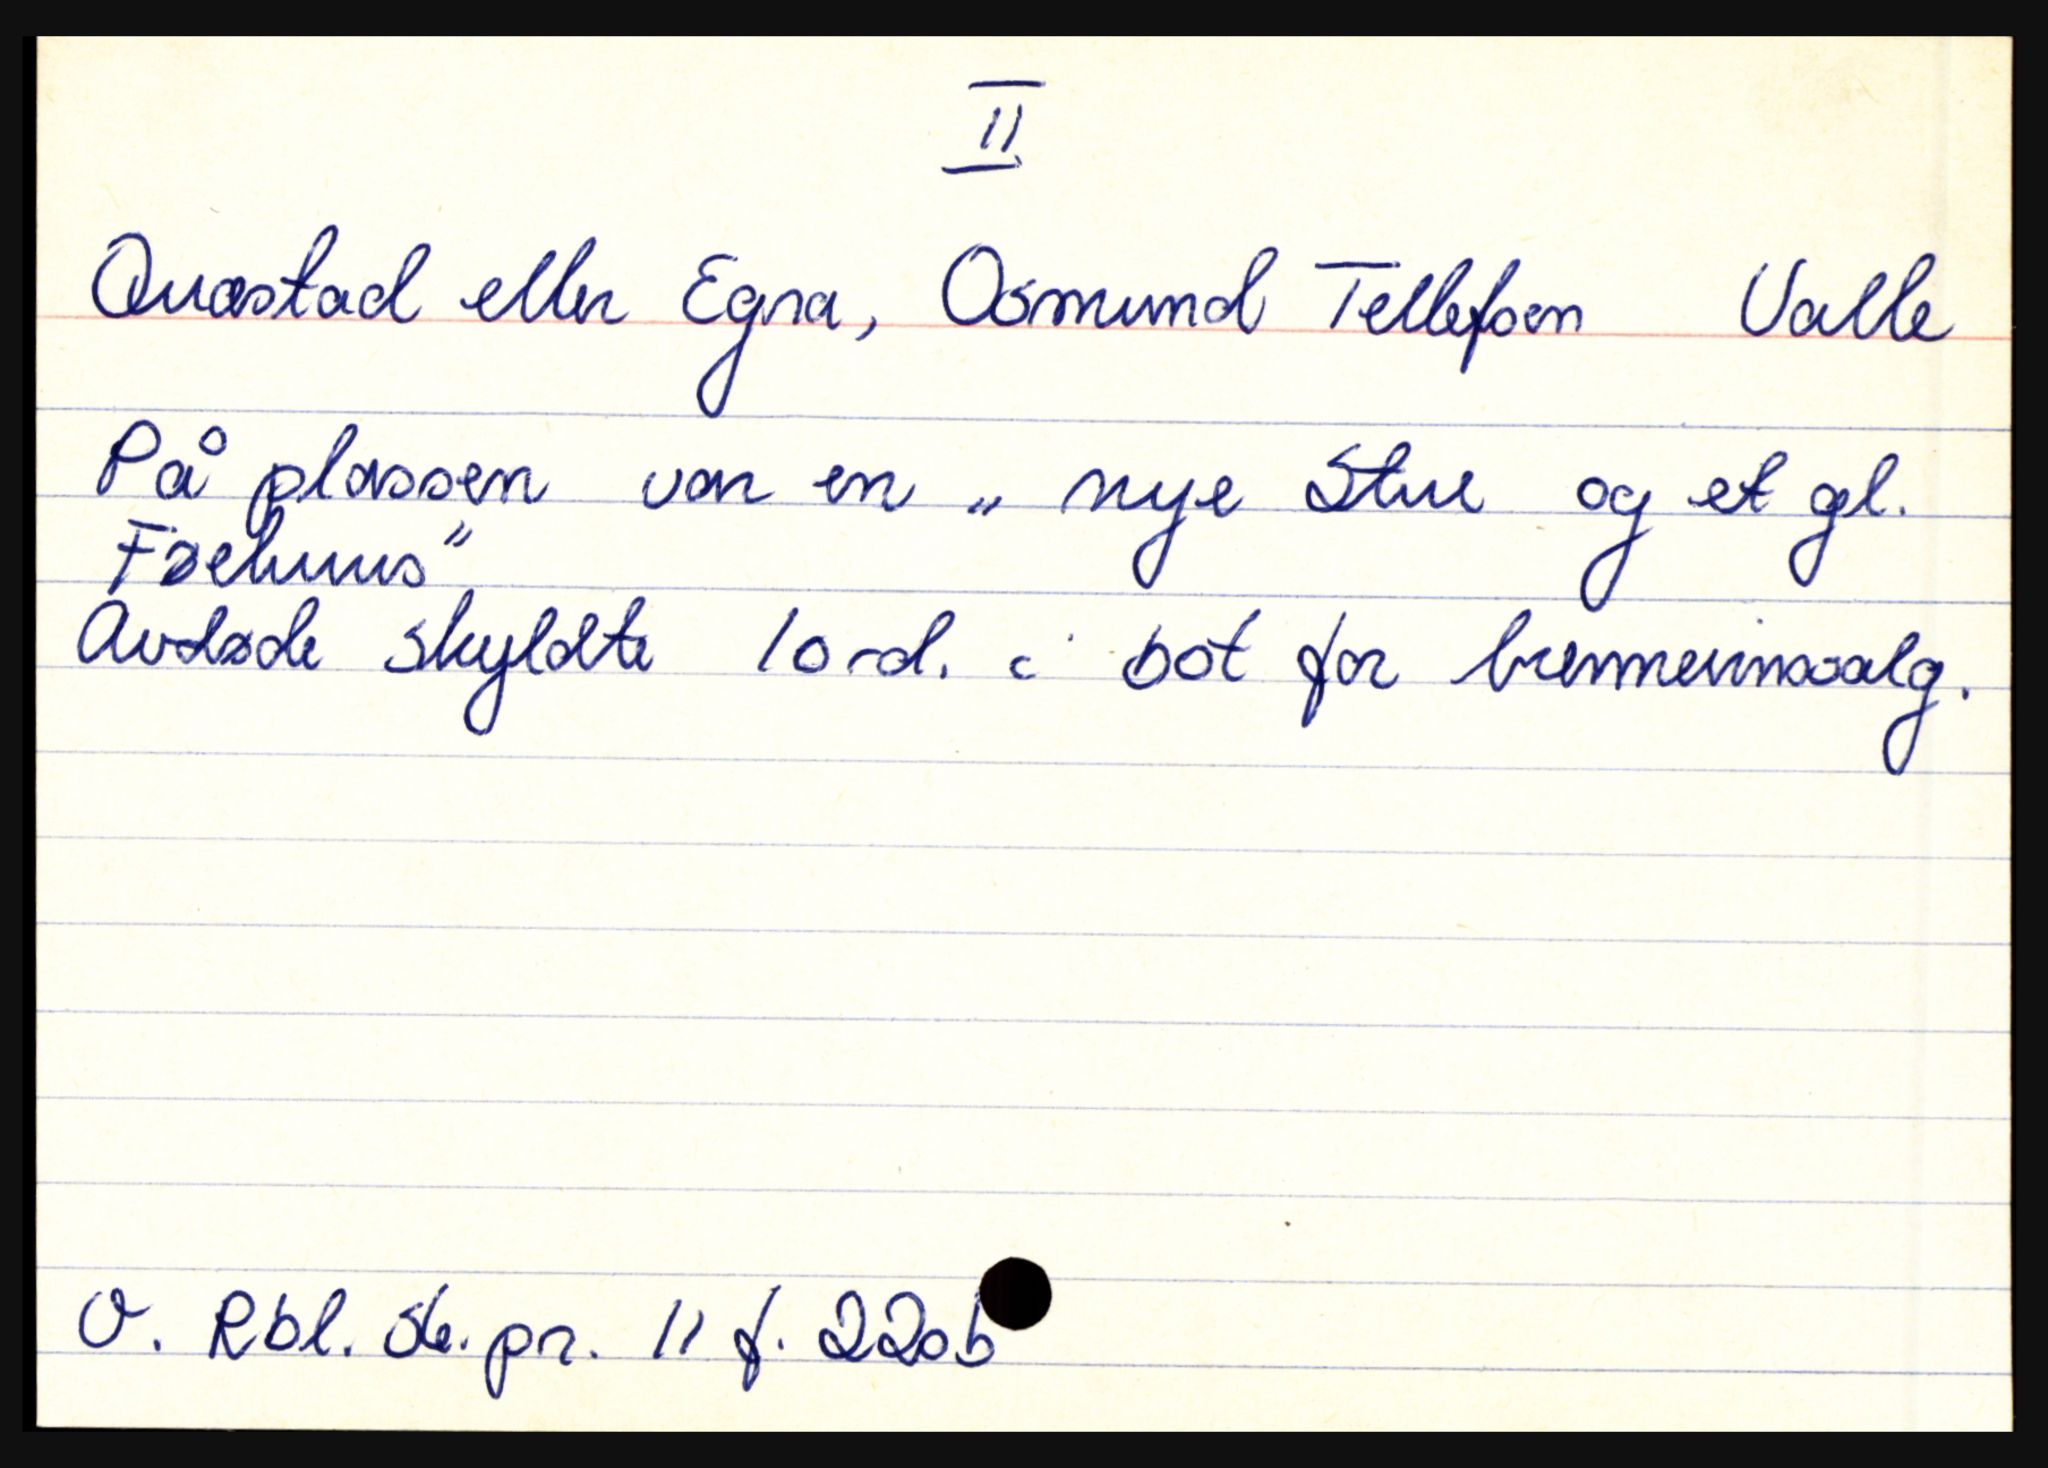 II
Quastad eller Egra, Osmund Tellefsen Valle
På plassen var en „ nye Stue og et gl.
Føehuus"
Avdøde skyldte 10 rd. i bot for brennevinssalg.
O. Rbl. Sk. pr. 11 f. 220b